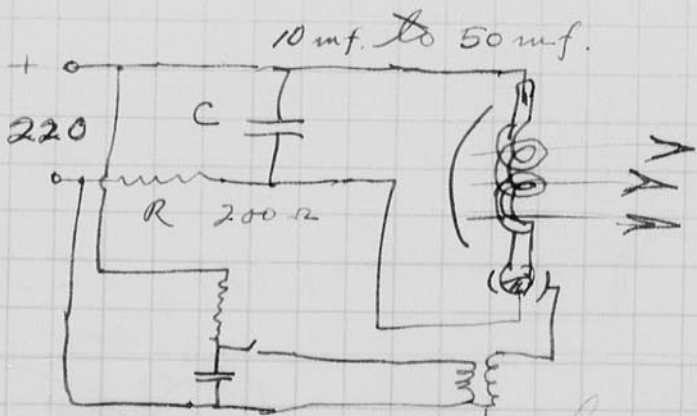 10 mf. to 50 mf.
+
220
C
R 200 Ω